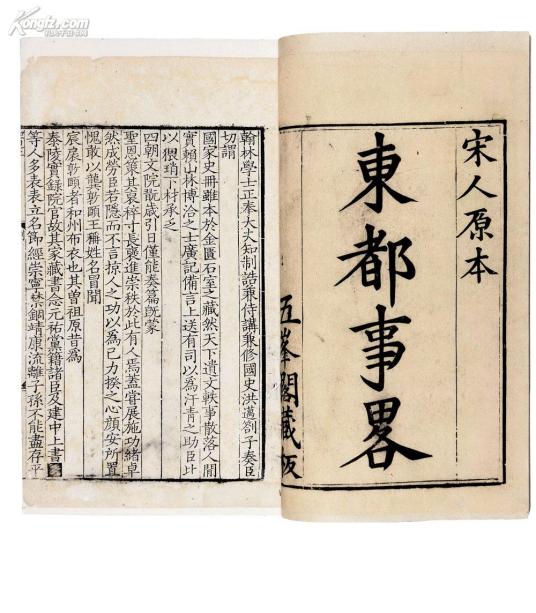 Kongfz.com
孔夫子旧书网
宋人原本
東都事畧
五峯閣藏板
翰林學士正奉大夫知制誥兼侍講兼修國史洪邁劄子奏臣
切謂
國家史冊雖本於金匱石室之藏然天下遺文軼事散落人間
實賴山林博洽之士廣記備言上送有司以為汗青之助臣比
以猥瑣下材承乏
四朝史院翫歲引日僅能奏篇旣蒙
聖恩褒其裒稡寸長襃進崇秩於此有人焉蓋嘗展施功緒卓
然成勞臣若隱而不言掠人之功以為己力揆之心顏安所置
愧敢以龔敦頤王稱姓名冒聞
宸扆敦頤者和州布衣也其曽祖原昔為
泰陵實錄院官故其家藏書念元祐黨籍諸臣及建中上書
等人多表表立名節經崇寧禁錮靖康流離子孫不能盡存平